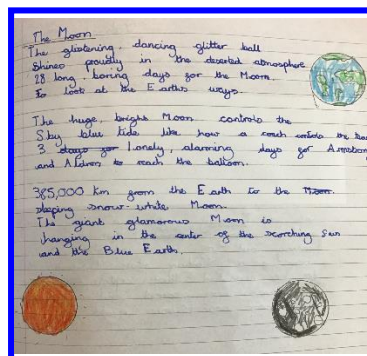 The Moon
The glistening, dancing glitter ball
Shines proudly in the deserted atmosphere
28 long, boring days for the Moon.
To look at the Earths ways.
The huge, bright Moon controls the
Sky blue tide like how a coach controls the
3 days for lonely, alarming days for Armstrong
and Aldren to reach the balloon.
385,000 km from the Earth to the Moon.
sleeping snow-white Moon.
The giant glamorous Moon is
hanging in the center of the scorching Sun
and the Blue Earth.